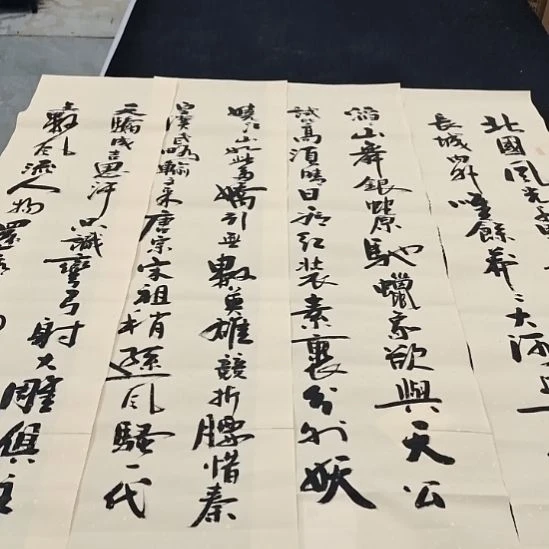 北國風光
長城內外唯餘莽〻大河上
山舞銀蛇原馳蠟象欲與天公
試比高須晴日看紅裝素裹分外妖
嬈江山如此多嬌引無數英雄競折腰惜秦
皇漢武略輸文采唐宗宋祖稍遜風騷一代
天驕成吉思汗只識彎弓射大雕俱往
矣數風流人物還看